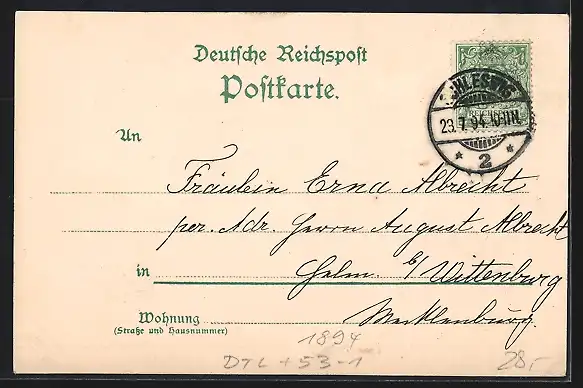 Deutsche Reichspost
Postkarte.
SCHLESWIG
REICHSPOST
23.7.94.10-11N.
* 2 *
An
Fräulein Erna Albrecht
per. Adr. Herrn August Albrecht
in Helm. b/ Wittenburg
Wohnung Mecklenburg.
(Straße und Hausnummer)
1894
DTL + 53-1
28,-